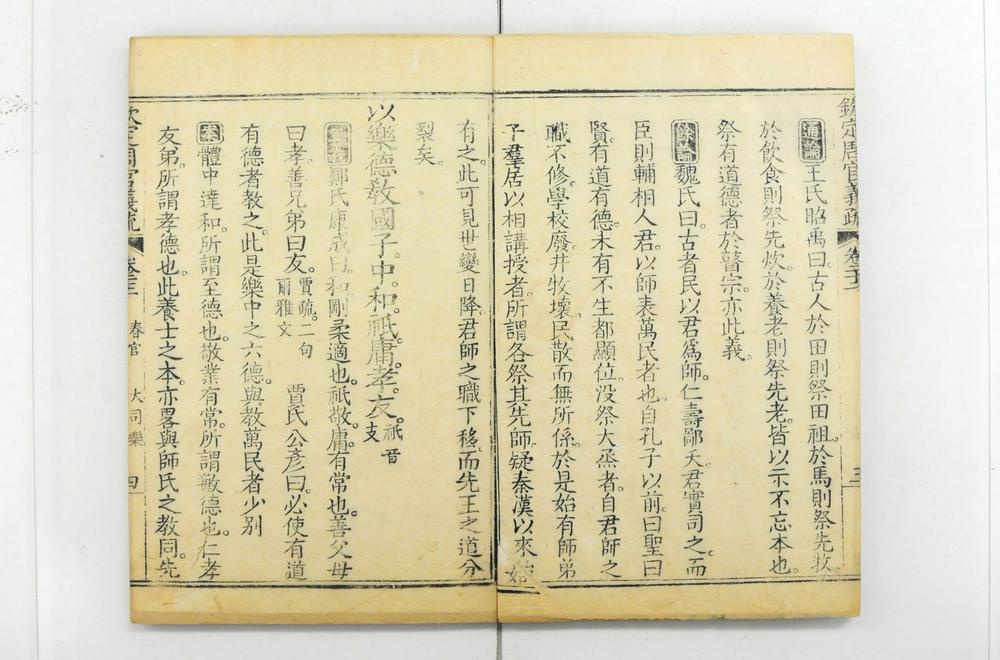 欽定周官義疏 卷二十二 三
通論 王氏昭禹曰古人於田則祭田祖於馬則祭先牧
於飲食則祭先炊於養老則祭先老皆以示不忘本也
祭有道德者於瞽宗亦此義
餘論 魏氏曰古者民以君為師仁壽鄙夭君實司之而
臣則輔相人君以師表萬民者也自孔子以前曰聖曰
賢有道有德未有不生都顯位没祭大烝者自君師之
職不修學校廢井牧壞民散而無所係於是始有師弟
子羣居以相講授者所謂各祭其先師疑秦漢以來始
有之此可見世變日降君師之職下移而先王之道分
裂矣
以樂德教國子中和祗庸孝友 祗音
支
鄭氏康成曰和剛柔適也祗敬庸有常也善父母
曰孝善兄弟曰友 賈疏二句
爾雅文 賈氏公彥曰必使有道
有德者教之此是樂中之六德與教萬民者少别
案 體中達和所謂至德也敬業有常所謂敏德也仁孝
友弟所謂孝德也此養士之本亦畧與師氏之教同先
欽定周官義疏 春官 大司樂 四